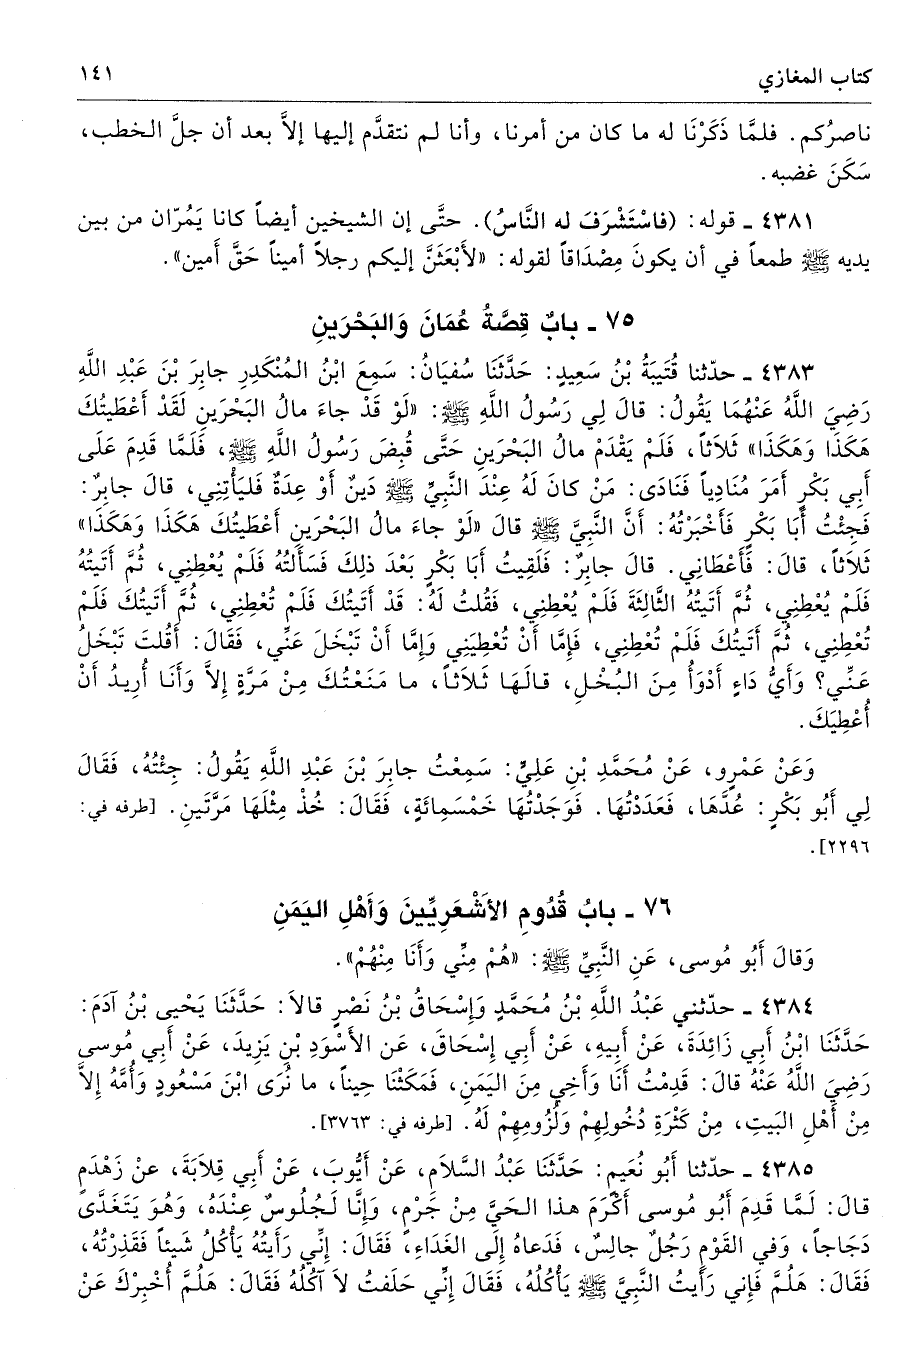 كتاب المغازي ١٤١
ناصرُكم. فلمَّا ذَكَرْنَا له ما كان من أمرنا، وأنا لم نتقدَّم إليها إلاَّ بعد أن جلَّ الخطب،
سَكَنَ غضبه.
٤٣٨١ ـ قوله: (فاسْتَشْرَفَ له النَّاسُ). حتَّى إن الشيخين أيضاً كانا يَمُرّان من بين
يديه ﷺ طمعاً في أن يكونَ مِصْدَاقاً لقوله: «لأبْعَثَنَّ إليكم رجلاً أميناً حَقَّ أمين».
٧٥ ـ بابُ قِصَّةُ عُمَانَ وَالبَحْرَينِ
٤٣٨٣ ـ حدّثنا قُتَيبَةُ بْنُ سَعِيدٍ: حَدَّثَنَا سُفيَانُ: سَمِعَ ابْنُ المُنْكَدِرِ جابِرَ بْنَ عَبْدِ اللَّهِ
رَضِيَ اللَّهُ عَنْهُمَا يَقُولُ: قالَ لِي رَسُولُ اللَّهِ ﷺ: «لَوْ قَدْ جاءَ مالُ البَحْرَينِ لَقَدْ أَعْطَيتُكَ
هَكَذَا وَهَكَذَا» ثَلاَثاً، فَلَمْ يَقْدَمْ مالُ البَحْرَينِ حَتَّى قُبِضَ رَسُولُ اللَّهِ ﷺ، فَلَمَّا قَدِمَ عَلَى
أَبِي بَكْرٍ أَمَرَ مُنَادِياً فَنَادَى: مَنْ كانَ لَهُ عِنْدَ النَّبِيِّ ﷺ دَينٌ أَوْ عِدَةٌ فَليَأْتِنِي، قالَ جابِرٌ:
فَجِئْتُ أَبَا بَكْرٍ فَأَخْبَرْتُهُ: أَنَّ النَّبِيَّ ﷺ قالَ «لَوْ جاءَ مالُ البَحْرَينِ أَعْطَيتُكَ هَكَذَا وَهَكَذَا»
ثَلاَثاً، قالَ: فَأَعْطَانِي. قالَ جابِرٌ: فَلَقِيتُ أَبَا بَكْرٍ بَعْدَ ذلِكَ فَسَأَلتُهُ فَلَمْ يُعْطِنِي، ثُمَّ أَتَيتُهُ
فَلَمْ يُعْطِنِي، ثُمَّ أَتَيتُهُ الثَّالِثَةَ فَلَمْ يُعْطِنِي، فَقُلتُ لَهُ: قَدْ أَتَيتُكَ فَلَمْ تُعْطِنِي، ثُمَّ أَتَيتُكَ فَلَمْ
تُعْطِنِي، ثُمَّ أَتَيتُكَ فَلَمْ تُعْطِنِي، فَإِمَّا أَنْ تُعْطِيَنِي وَإِمَّا أَنْ تَبْخَلَ عَنِّي، فَقَالَ: أَقُلتَ تَبْخَلُ
عَنِّي؟ وَأَيُّ دَاءٍ أَدْوَأُ مِنَ البُخْلِ، قالَهَا ثَلاَثاً، ما مَنَعْتُكَ مِنْ مَرَّةٍ إِلاَّ وَأَنَا أُرِيدُ أَنْ
أُعْطِيَكَ.
وَعَنْ عَمْرٍو، عَنْ مُحَمَّدِ بْنِ عَلِيٍّ: سَمِعْتُ جابِرَ بْنَ عَبْدِ اللَّهِ يَقُولُ: جِئْتُهُ، فَقَالَ
لِي أَبُو بَكْرٍ: عُدَّهَا، فَعَدَدْتُهَا. فَوَجَدْتُهَا خَمْسَمِائَةٍ، فَقَالَ: خُذْ مِثْلَهَا مَرَّتَينِ. [طرفه في:
٢٢٩٦].
٧٦ ـ بابُ قُدُومِ الأَشْعَرِيِّينَ وَأَهْلِ اليَمَنِ
وَقالَ أَبُو مُوسى، عَنِ النَّبِيِّ ﷺ: «هُمْ مِنِّي وَأَنَا مِنْهُمْ».
٤٣٨٤ ـ حدّثني عَبْدُ اللَّهِ بْنُ مُحَمَّدٍ وَإِسْحَاقُ بْنُ نَصْرٍ قالاَ: حَدَّثَنَا يَحْيى بْنُ آدَمَ:
حَدَّثَنَا ابْنُ أَبِي زَائِدَةَ، عَنْ أَبِيهِ، عَنْ أَبِي إِسْحَاقَ، عَنِ الأَسْوَدِ بْنِ يَزِيدَ، عَنْ أَبِي مُوسى
رَضِيَ اللَّهُ عَنْهُ قالَ: قَدِمْتُ أَنَا وَأَخِي مِنَ اليَمَنِ، فَمَكَثْنَا حِيناً، ما نُرَى ابْنَ مَسْعُودٍ وَأُمَّهُ إِلاَّ
مِنْ أَهْلِ البَيتِ، مِنْ كَثْرَةِ دُخُولِهِمْ وَلُزُومِهِمْ لَهُ. [طرفه في: ٣٧٦٣].
٤٣٨٥ ـ حدّثنا أَبُو نُعَيمٍ: حَدَّثَنَا عَبْدُ السَّلاَمِ، عَنْ أَيُّوبَ، عَنْ أَبِي قِلاَبَةَ، عنْ زَهْدَمٍ
قالَ: لَمَّا قَدِمَ أَبُو مُوسى أَكْرَمَ هذا الحَيَّ مِنْ جَرْمٍ، وَإِنَّا لَجُلُوسٌ عِنْدَهُ، وَهُوَ يَتَغَدَّى
دَجَاجاً، وَفي القَوْمِ رَجُلٌ جالِسٌ، فَدَعاهُ إِلَى الغَدَاءِ، فَقَالَ: إِنِّي رَأَيتُهُ يَأْكُلُ شَيئاً فَقَذِرْتُهُ،
فَقَالَ: هَلُمَّ فَإِني رَأَيتُ النَّبِيَّ ﷺ يَأْكُلُهُ، فَقَالَ إِنِّي حَلَفتُ لاَ آكُلُهُ فَقَالَ: هَلُمَّ أُخْبِرْكَ عَنْ